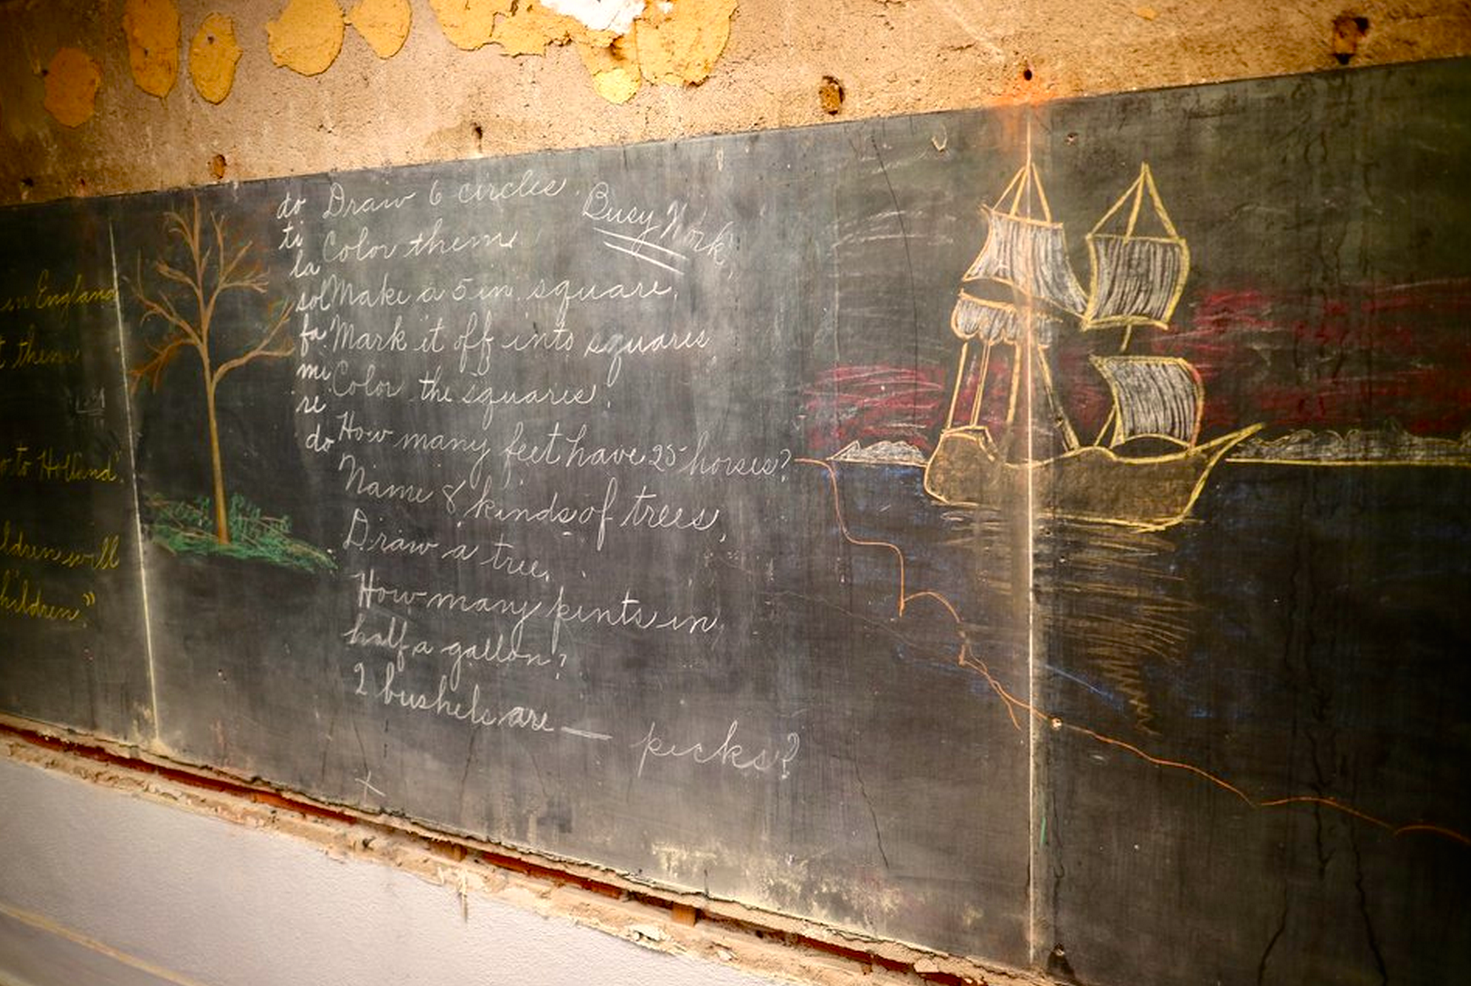 in England
t them
to Holland."
ldren will
hildren."
do Draw 6 circles. Busy Work,
ti Color them
la
sol Make a 5 in. square,
fa Mark it off into squares
mi Color the squares.
re
do How many feet have 25 horses?
Name 8 kinds of trees,
Draw a tree.
How many pints in
half a gallon?
2 bushels are — pecks?